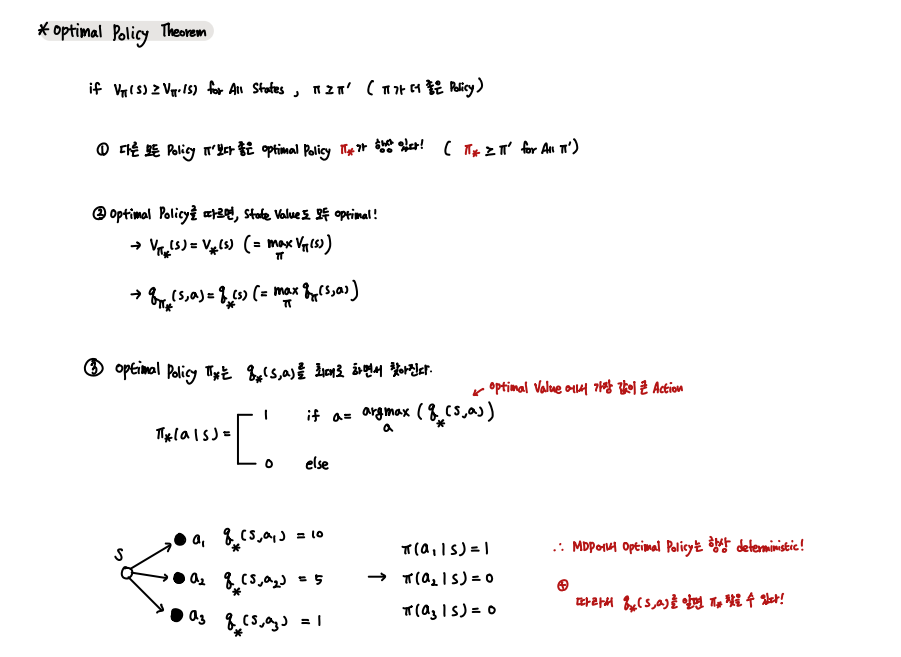 * Optimal Policy Theorem
if V_π(s) ≥ V_π'(s) for All States , π ≥ π' ( π가 더 좋은 Policy )
① 다른 모든 Policy π'보다 좋은 optimal Policy π*가 항상 있다! ( π* ≥ π' for All π' )
② Optimal Policy를 따르면, State Value도 모두 optimal!
→ V_π*(s) = V*(s) (= max_π V_π(s))
→ q_π*(s,a) = q*(s) (= max_π q_π(s,a))
③ optimal Policy π*는 q*(s,a)를 최대로 하면서 찾아진다.
↙ optimal Value에서 가장 값이 큰 Action
π*(a|s) = [ 1 if a = argmax_a (q*(s,a))
0 else
s
a₁ q*(s,a₁) = 10
a₂ q*(s,a₂) = 5
a₃ q*(s,a₃) = 1
→
π(a₁|s) = 1
π(a₂|s) = 0
π(a₃|s) = 0
∴ MDP에서 Optimal Policy는 항상 deterministic!
⊕
따라서 q*(s,a)를 알면 π* 찾을 수 있다!